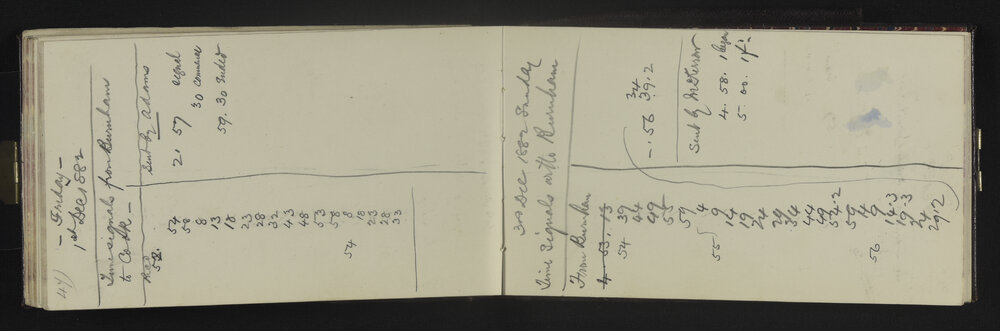 47)
- Friday -
1st Dec 1882
Time signals from Burnham
to Cooke -
Rec
52.
54
58
8
13
18
23
28
32
43
48
53
58
54 8
18
23
28
33
Sent by Adams
21 57 signal
30 Commence
59. 30 Ended
3rd Dec 1882 Sunday
Time Signals with Burnham
From Burnham
4. 53. 13
54 39
44
49
54
59
55 4
9
14
19
24
29
34
44
49
54.2
59
4
56 9
14.3
19.3
24
29.2
34
-. 56 39.2
Sent by McKerrow
4. 58. 1 began
5. 00. 14